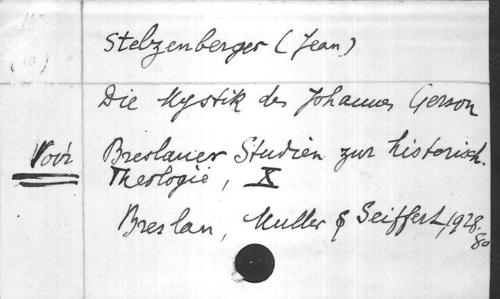 Stelzenberger (Jean)
Die Mystik des Johannes Gerson
Voir Breslauer Studien zur historisch.
Theologie, X
Breslau, Muller & Seiffert, 1928.
80